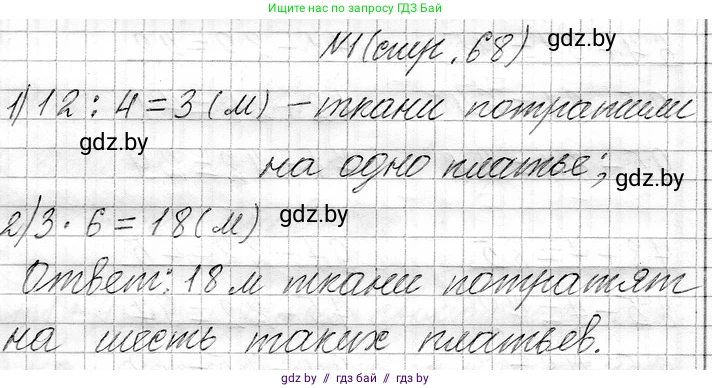 Ищите нас по запросу ГДЗ Бай
№1 (стр. 68) gdz.by
1) 12 : 4 = 3 (м) – ткани потратили
gdz.by
на одно платье; gdz.by
2) 3 · 6 = 18 (м) gdz.by
Ответ: 18 м ткани потратят
на шесть таких платьев.
gdz.by // гдз бай // gdz.by // гдз бай